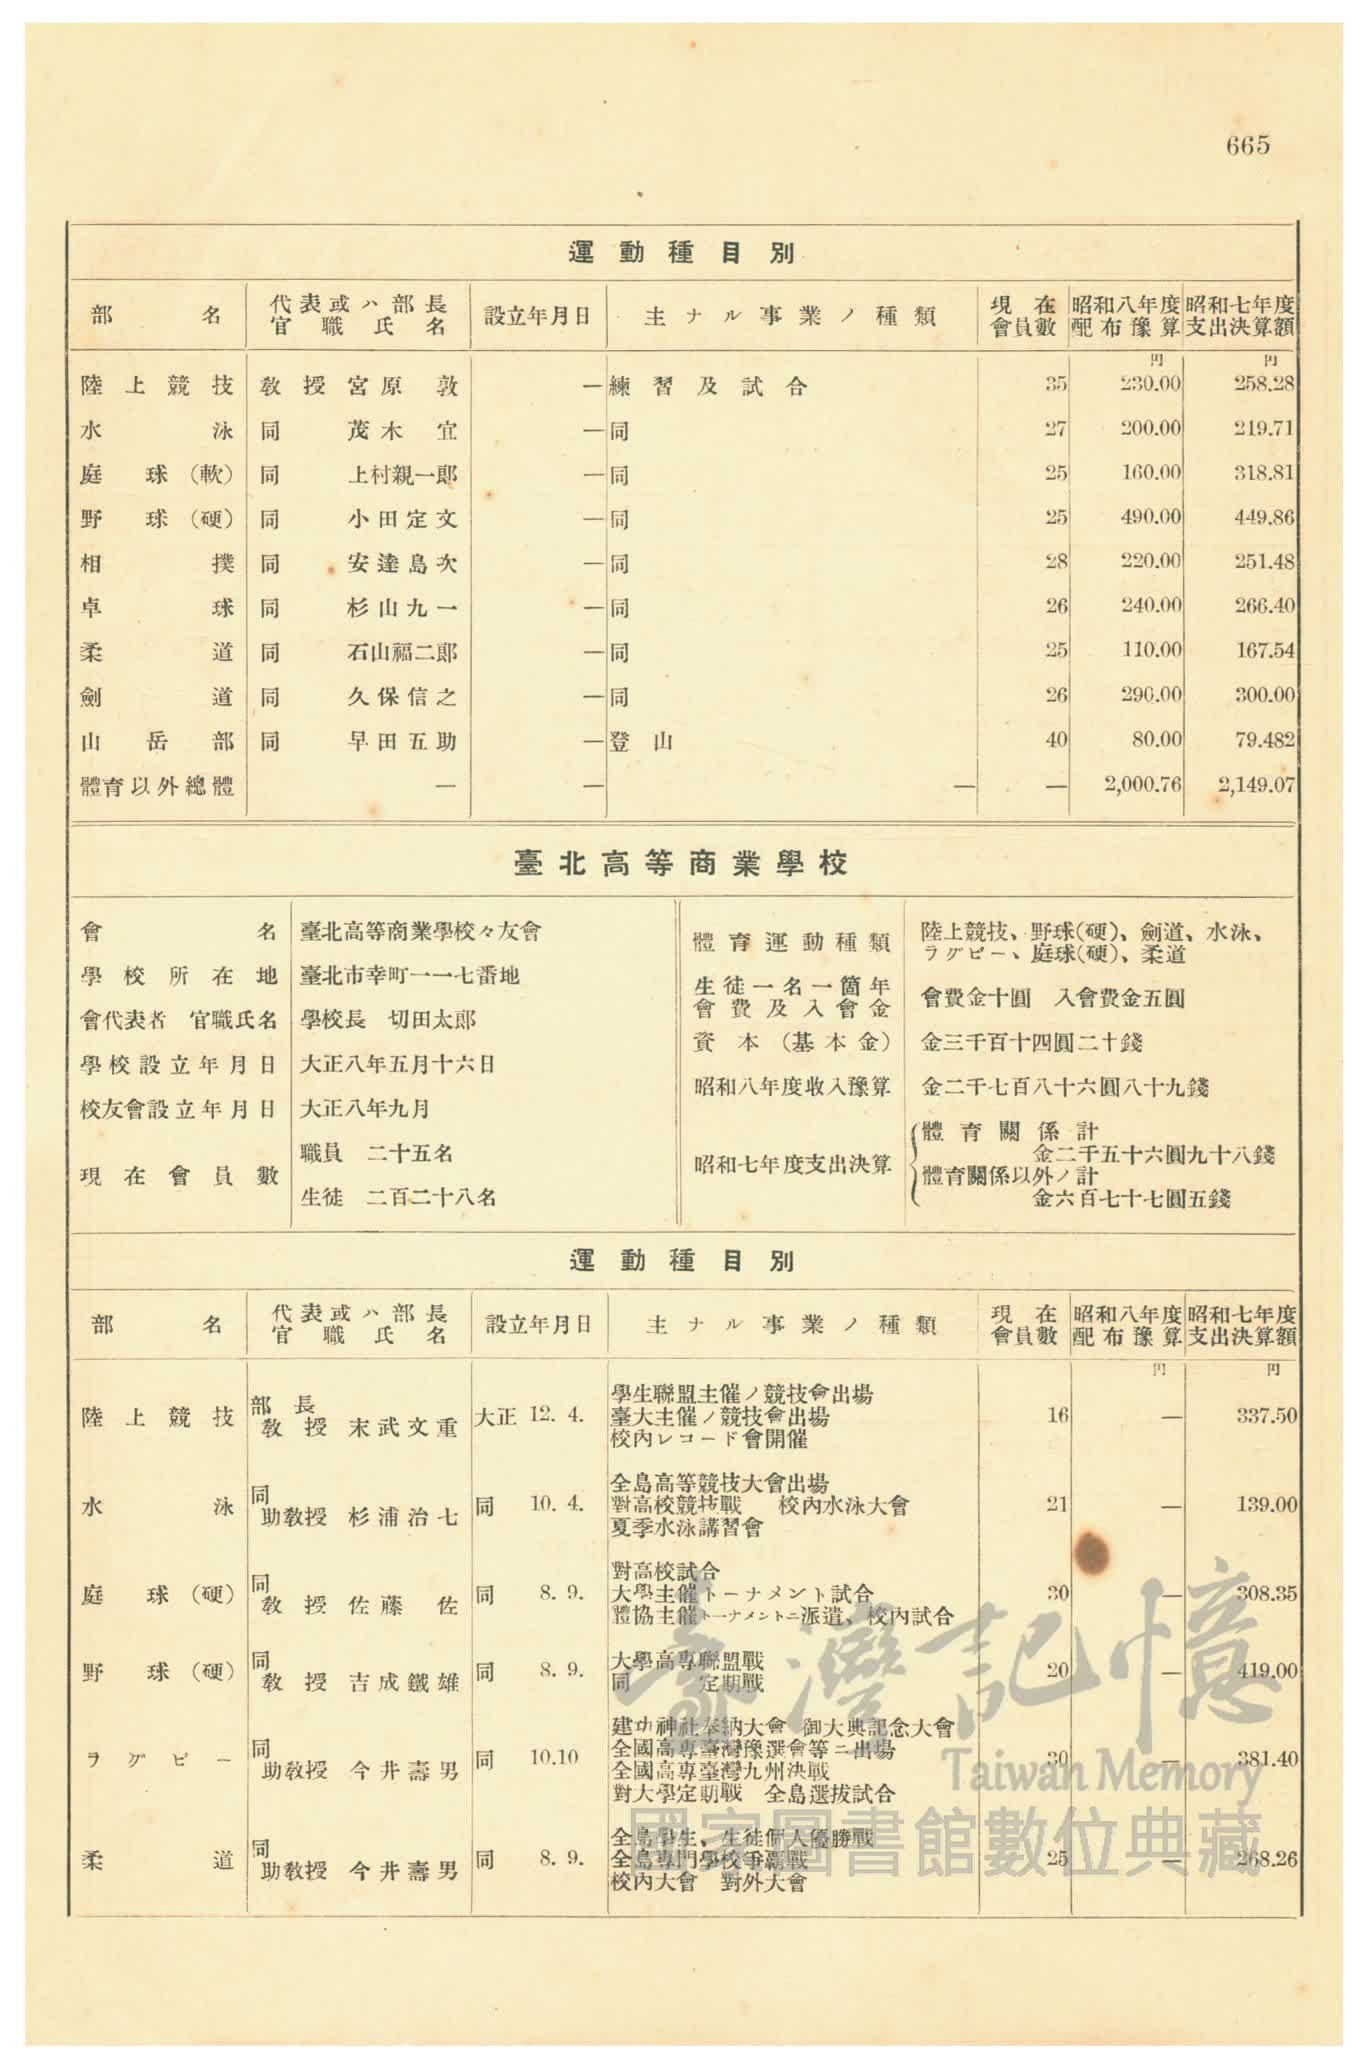 665
運動種目別
部名 代表或ハ部長官職氏名 設立年月日 主ナル事業ノ種類 現在會員數 昭和八年度配布豫算 昭和七年度支出決算額
円 円
陸上競技 教授 宮原敦 — 練習及試合 35 230.00 258.28
水泳 同 茂木宜 — 同 27 200.00 219.71
庭球(軟) 同 上村親一郎 — 同 25 160.00 318.81
野球(硬) 同 小田定文 — 同 25 490.00 449.86
相撲 同 安達島次 — 同 28 220.00 251.48
卓球 同 杉山九一 — 同 26 240.00 266.40
柔道 同 石山福二郎 — 同 25 110.00 167.54
劍道 同 久保信之 — 同 26 290.00 300.00
山岳部 同 早田五助 — 登山 40 80.00 79.482
體育以外總體 — — — — 2,000.76 2,149.07
臺北高等商業學校
會名 臺北高等商業學校々友會
學校所在地 臺北市幸町一一七番地
會代表者 官職氏名 學校長 切田太郎
學校設立年月日 大正八年五月十六日
校友會設立年月日 大正八年九月
現在會員數 職員 二十五名
生徒 二百二十八名
體育運動種類 陸上競技、野球(硬)、劍道、水泳、
ラグビー、庭球(硬)、柔道
生徒一名一箇年
會費及入會金 會費金十圓 入會費金五圓
資本(基本金) 金三千百十四圓二十錢
昭和八年度收入豫算 金二千七百八十六圓八十九錢
昭和七年度支出決算 體育關係計
金二千五十六圓九十八錢
體育關係以外ノ計
金六百七十七圓五錢
運動種目別
部名 代表或ハ部長官職氏名 設立年月日 主ナル事業ノ種類 現在會員數 昭和八年度配布豫算 昭和七年度支出決算額
円 円
陸上競技 部長 教授 末武文重 大正 12. 4. 學生聯盟主催ノ競技會出場 16 — 337.50
臺大主催ノ競技會出場
校內レコード會開催
水泳 同 助教授 杉浦治七 同 10. 4. 全島高等競技大會出場 21 — 139.00
對高校競技戰 校內水泳大會
夏季水泳講習會
庭球(硬) 同 教授 佐藤佐 同 8. 9. 對高校試合 30 — 308.35
大學主催トーナメント試合
體協主催トーナメントニ派遣、校內試合
野球(硬) 同 教授 吉成鐵雄 同 8. 9. 大學高專聯盟戰 20 — 419.00
同 定期戰
ラグビー 同 助教授 今井壽男 同 10.10 建功神社奉納大會 御大典記念大會 30 — 381.40
全國高專臺灣豫選會等ニ出場
全國高專臺灣九州決戰
對大學定期戰 全島選拔試合
柔道 同 助教授 今井壽男 同 8. 9. 全島學生、生徒個人優勝戰 25 — 268.26
全島專門學校爭霸戰
校內大會 對外大會
臺灣記憶
Taiwan Memory
國家圖書館數位典藏